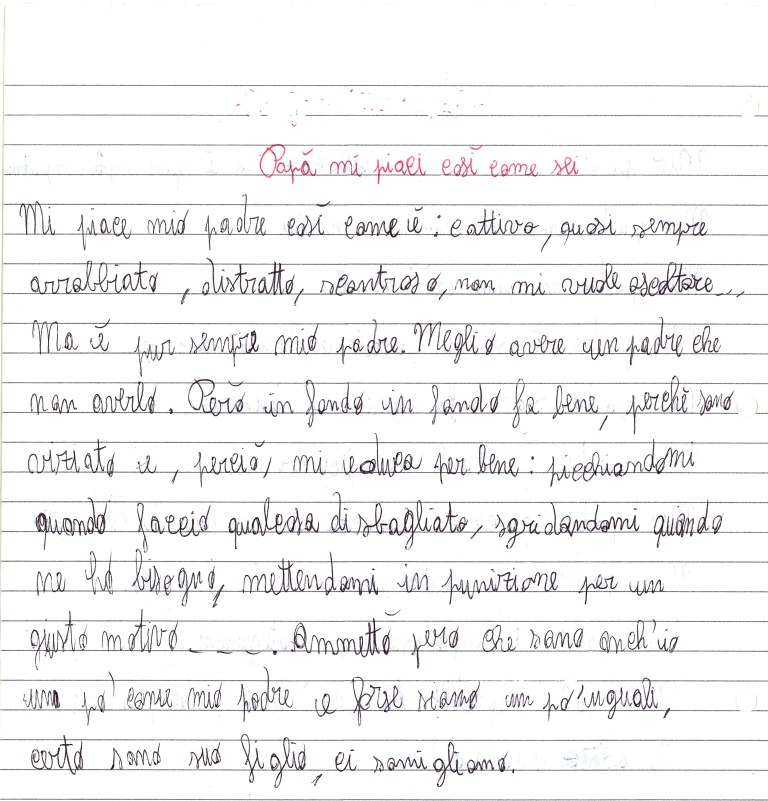 Papà mi piaci così come sei
Mi piace mio padre così come è: cattivo, quasi sempre
arrabbiato, distratto, scontroso, non mi vuole ascoltare...
Ma è pur sempre mio padre. Meglio avere un padre che
non averlo. Però in fondo in fondo fa bene, perchè sono
viziato e, perciò, mi educa per bene: picchiandomi
quando faccio qualcosa di sbagliato, sgridandomi quando
ne ho bisogno, mettendomi in punizione per un
giusto motivo .... Ammetto però che sono anch'io
uno po' come mio padre e forse siamo un po' uguali,
certo sono suo figlio, ci somigliamo.